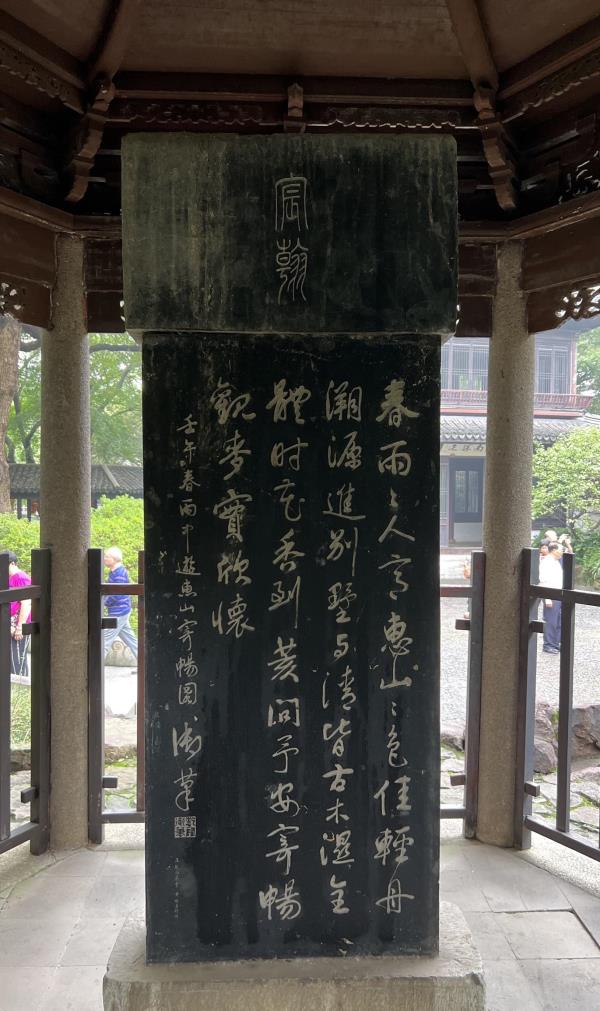 宸翰
春雨〻人意惠山〻色佳輕舟
溯源進別墅与清皆古木濕全
體時花香到荄問予安寄暢
觀麥實欣懷
壬午春雨中遊惠山寄暢園御筆